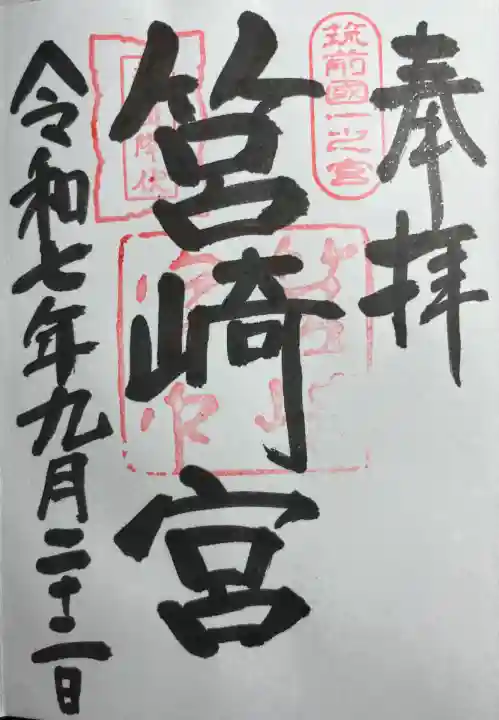 奉拝
筑前國一之宮
筥崎宮
令和七年九月二十二日